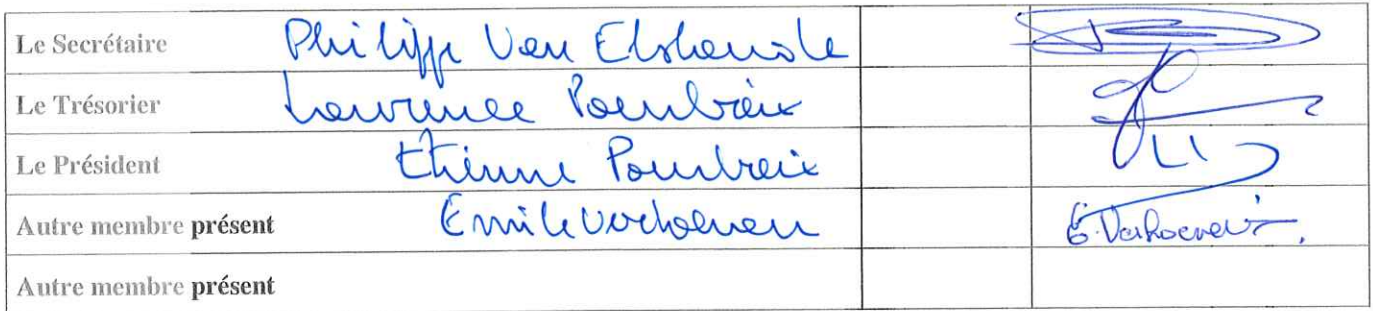 Le Secrétaire Philippe Van Elslande
Le Trésorier Laurence Poulvoix
Le Président Etienne
Autre membre présent Emile Verhoeven E. Verhoeven
Autre membre présent